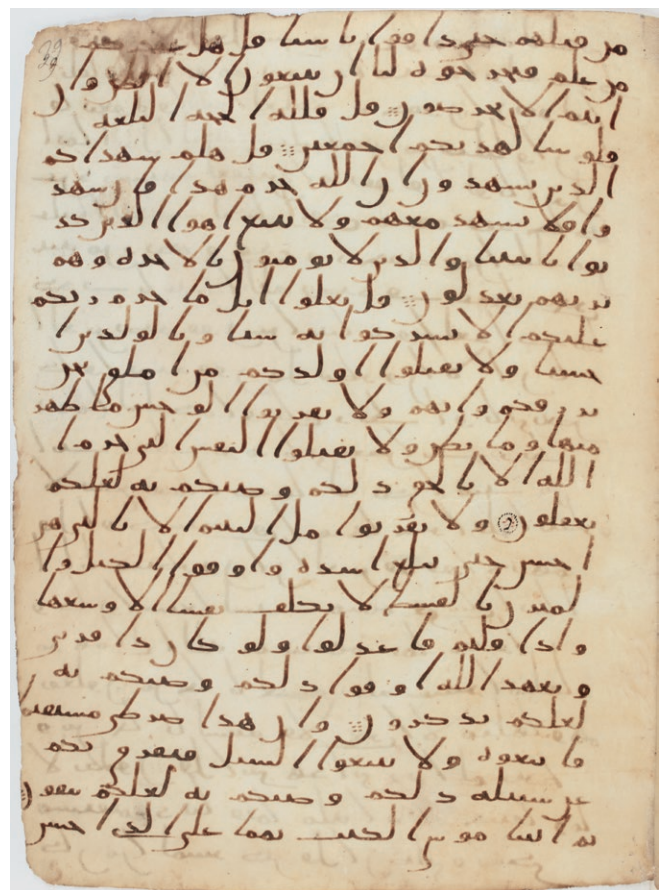 من قبلهم حتى ذاقوا باسنا قل هل عندكم
من علم فتخرجوه لنا ان تتبعون الا الظن وان
انتم الا تخرصون قل فلله الحجة البلغة
فلو شا لهديكم اجمعين قل هلم شهداكم
الذين يشهدون ان الله حرم هذا فان شهد
وا فلا تشهد معهم ولا تتبع اهوا الذين كذ
بوا بايتنا والذين لا يومنون بالاخرة وهم
بربهم يعدلون قل تعلوا اتل ما حرم ربكم
عليكم الا تشركوا به شيا وبالولدين ا
حسنا ولا تقتلوا اولدكم من املق نحن
نرزقكم وايهم ولا تقربوا الفوحش ما ظهر
منها وما بطن ولا تقتلوا النفس التي حرم
الله الا بالحق ذلكم وصيكم به لعلكم
تعقلون ولا تقربوا مل اليتيم الا بالتي هي
احسن حتى يبلغ اشده واوفوا الكيل وا
لميزن بالقسط لا نكلف نفسا الا وسعها
واذا قلتم فاعدلوا ولو كان ذا قربى
وبعهد الله اوفوا ذلكم وصيكم به
لعلكم تذكرون وان هذا صرطي مستقيما
فاتبعوه ولا تتبعوا السبل فتفرق بكم
عن سبيله ذلكم وصيكم به لعلكم تتقون
ثم اتينا موسى الكتب تمما على الذي احسن